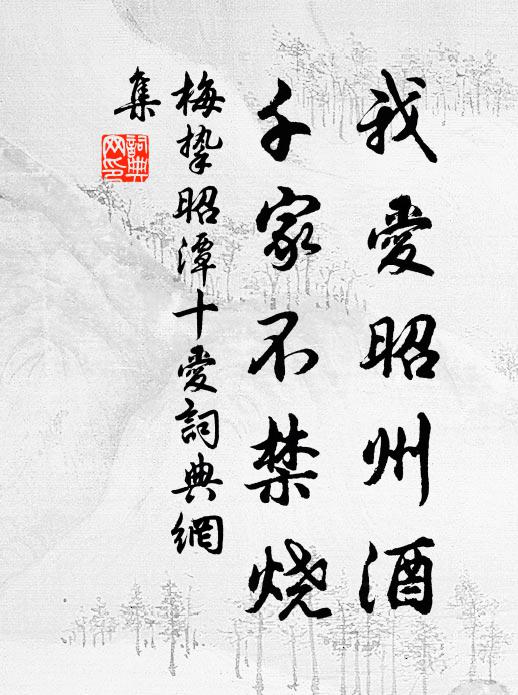 我爱昭州酒
千家不禁烧
梅挚昭潭十爱詞典網
集
詞典网印